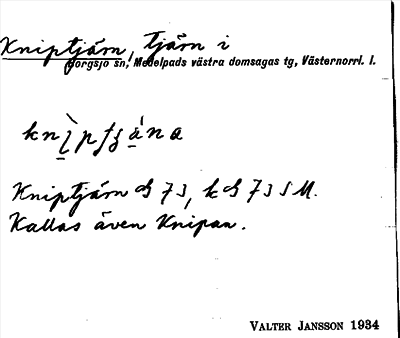 Kniptjärn, tjärn i
Borgsjö sn, Medelpads västra domsagas tg, Västernorrl. l.
Kniptjärn
Kallas även Knipan.
VALTER JANSSON 1934